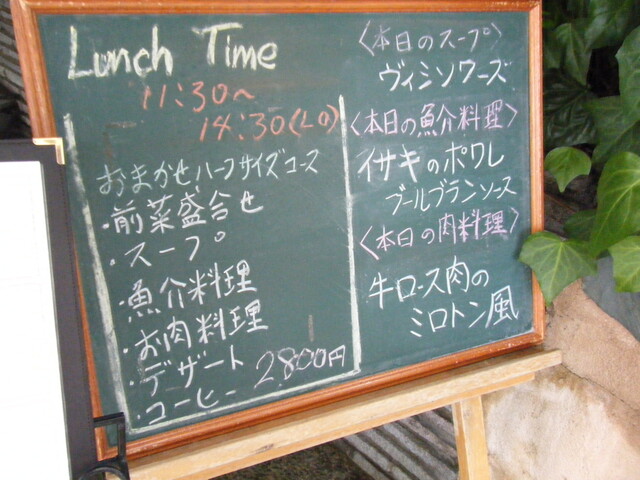 Lunch Time
11:30～
14:30(LO)
おまかせハーフサイズコース
・前菜盛合せ
・スープ
・魚介料理
・お肉料理
・デザート
・コーヒー 2800円
〈本日のスープ〉
ヴィシソワーズ
〈本日の魚介料理〉
イサキのポワレ
ブールブランソース
〈本日の肉料理〉
牛ロース肉の
ミロトン風